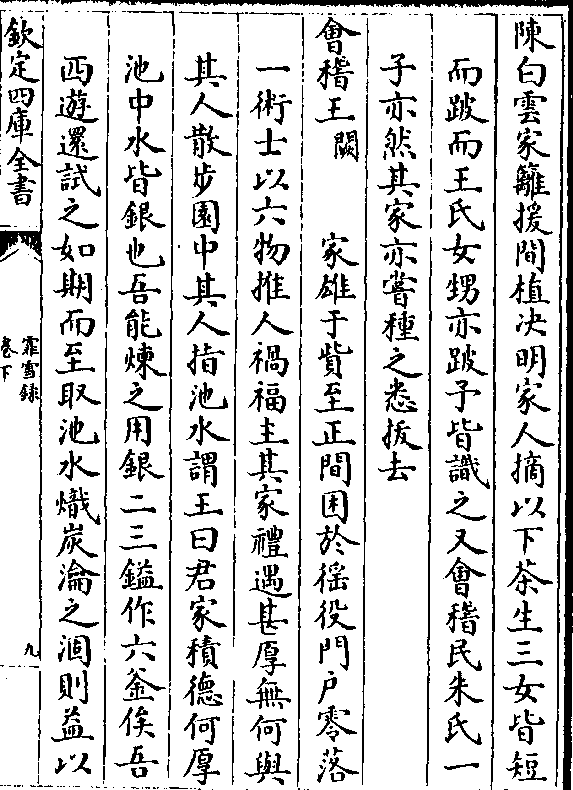 陳白雲家籬援間植决明家人摘以下茶生三女皆短
而跛而王氏女甥亦跛予皆識之又㑹稽民朱氏一
子亦然其家亦嘗種之悉拔去
㑹稽王闕家雄于貲至正間困於徭役門户零落
一術士以六物推人禍福主其家禮遇甚厚無何與
其人散步園中其人指池水謂王曰君家積德何厚
池中水皆銀也吾能煉之用銀二三鎰作六釜俟吾
西遊還試之如期而至取池水熾炭瀹之涸則益以
欽定四庫全書
霏雪録
卷下
九